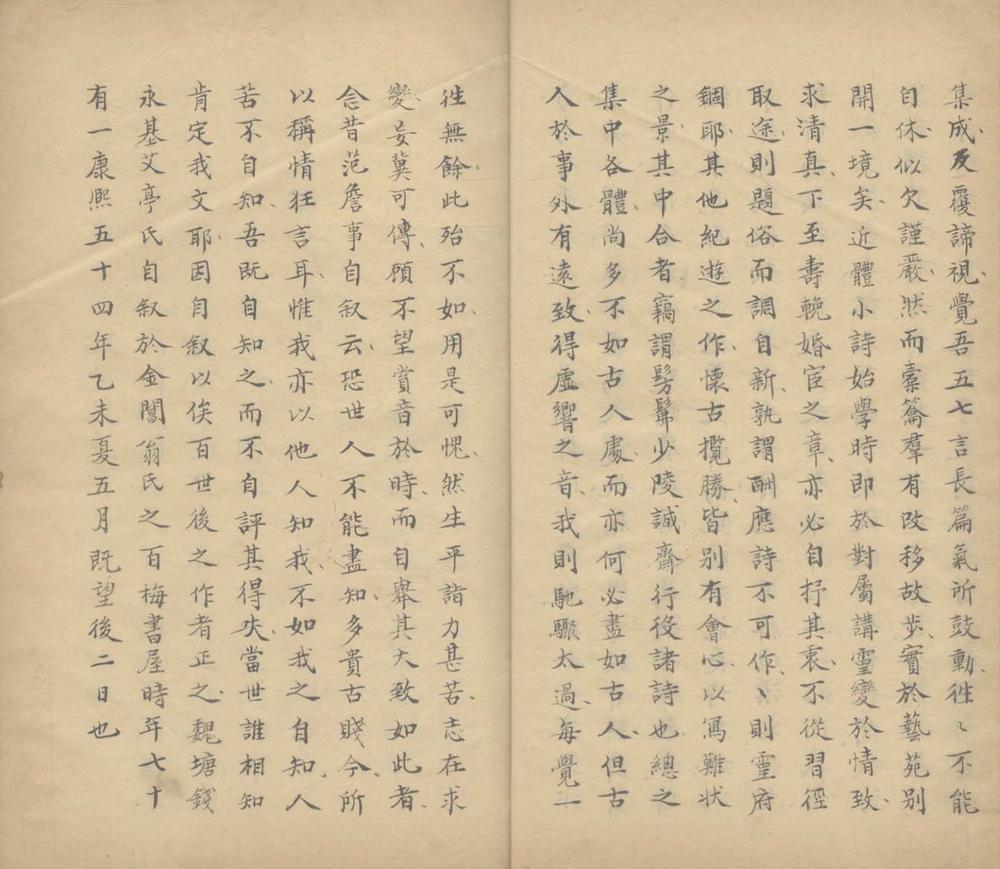 集成反覆諦視覺吾五七言長篇氣所鼓動徃〻不能
自休似欠謹嚴然而橐籥羣有改移故步實於藝苑别
開一境矣近體小詩始學時即於對屬講靈變於情致
求清真下至壽輓婚宦之章亦必自抒其衷不從習徑
取途則題俗而調自新孰謂酬應詩不可作丶則靈府
錮耶其他紀遊之作懷古攬勝皆别有會心以寫難狀
之景其中合者竊謂髣髴少陵誠齋行役諸詩也總之
集中各體尚多不如古人處而亦何必盡如古人但古
人於事外有遠致得虛響之音我則馳驟太過每覺一
徃無餘此殆不如用是可愧然生平詣力甚苦志在求
變妄冀可傳顧不望賞音於時而自舉其大致如此者
念昔范詹事自叙云恐世人不能盡知多貴古賤今所
以稱情狂言耳惟我亦以他人知我不如我之自知人
苦不自知吾既自知之而不自評其得失當世誰相知
肯定我文耶因自叙以俟百世後之作者正之魏塘錢
永基艾亭氏自叙於金閶翁氏之百梅書屋時年七十
有一康熙五十四年乙未夏五月既望後二日也